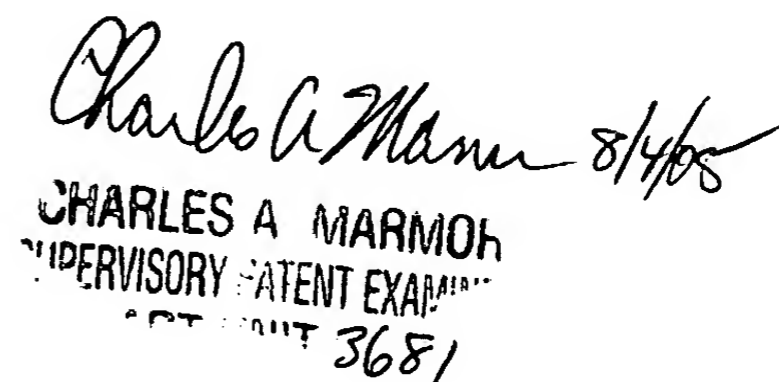 Charles A Marmor 8/4/05
CHARLES A MARMOR
SUPERVISORY PATENT EXAMINER
ART UNIT 3681